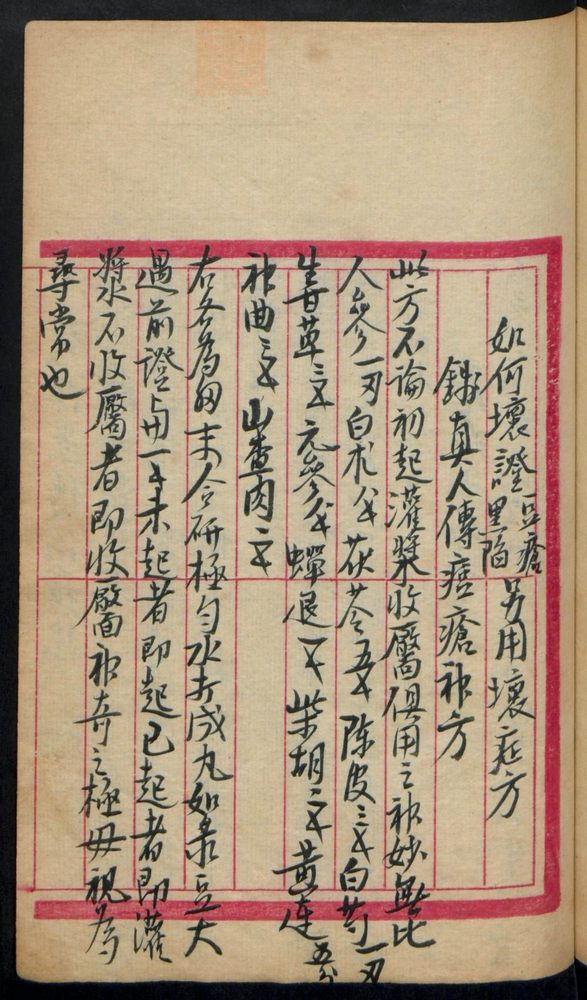 如何壞證豆瘡黑陷另用壞症方
真人傳痘瘡神方
此方不論初起灌漿收靨俱用之神妙無比
人參一刃白朮 茯苓五錢陳皮三錢白芍一刃
生甘草三錢元參 蟬退一錢柴胡二錢黃連五分
神曲三錢山查肉二錢
右各為細末合研極勻水打成丸如彔豆大
遇前證與用一錢未起者即起已起者即灌
漿不收靨者即收靨神奇之極毋視為
尋常也